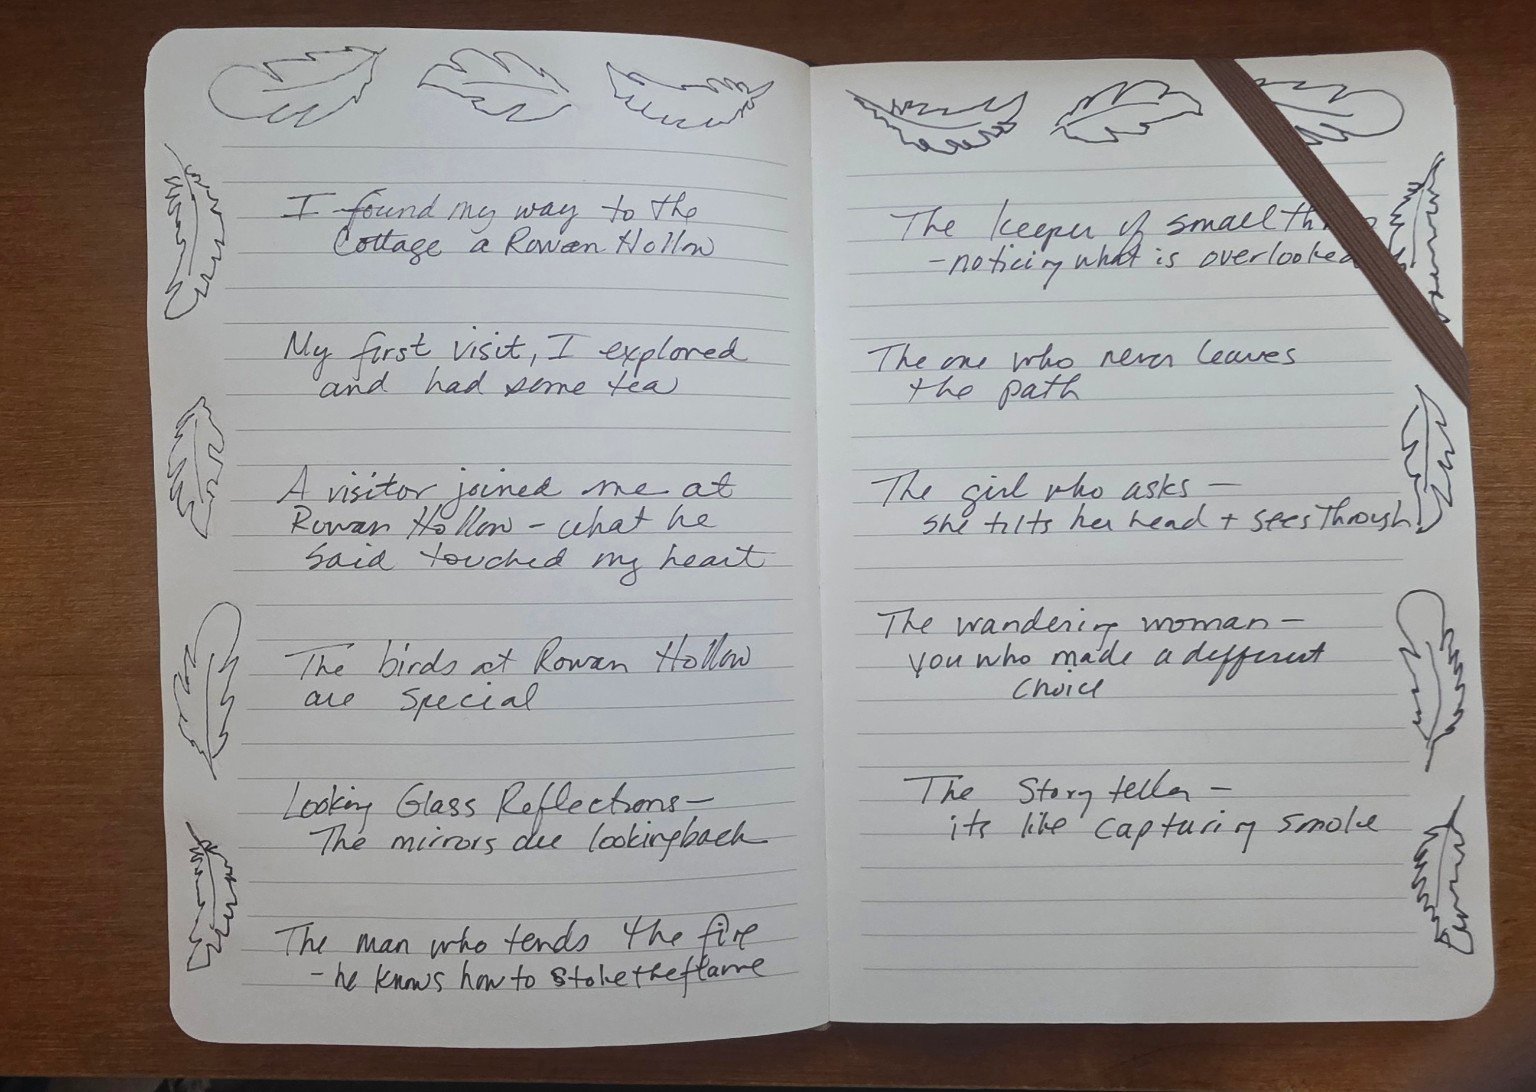 I found my way to the
Cottage a Rowan Hollow
My first visit, I explored
and had some tea
A visitor joined me at
Rowan Hollow - what he
said touched my heart
The birds at Rowan Hollow
are special
Looking Glass Reflections -
The mirrors are looking back
The man who tends the fire
- he knows how to stoke the flame
The keeper of small
- noticing what is overlooked
The one who never leaves
the path
The girl who asks -
she tilts her head + sees through
The wandering woman -
you who made a different
choice
The Story teller -
its like capturing smoke